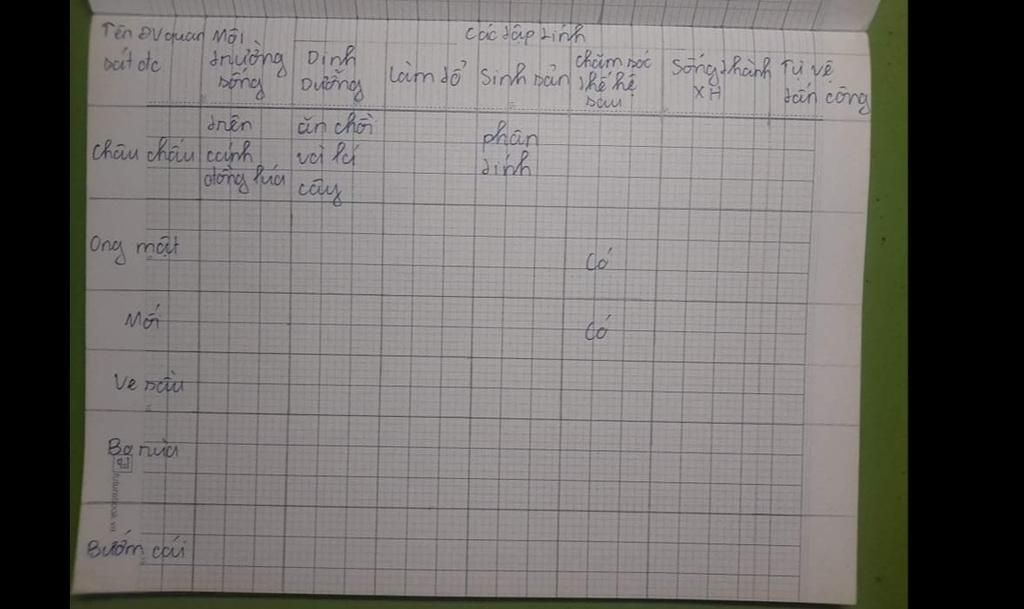 Tên ĐV quan sát đc
Môi trường sống
Các tập tính
Dinh Dưỡng
Làm tổ
Sinh sản
chăm sóc thế hệ sau
Sống thành XH
Tự vệ tấn công
châu chấu
trên cánh đồng lúa
ăn chồi và lá cây
phân tính
Ong mật
Có
Mối
Có
Ve sầu
Bọ rùa
Bướm cái